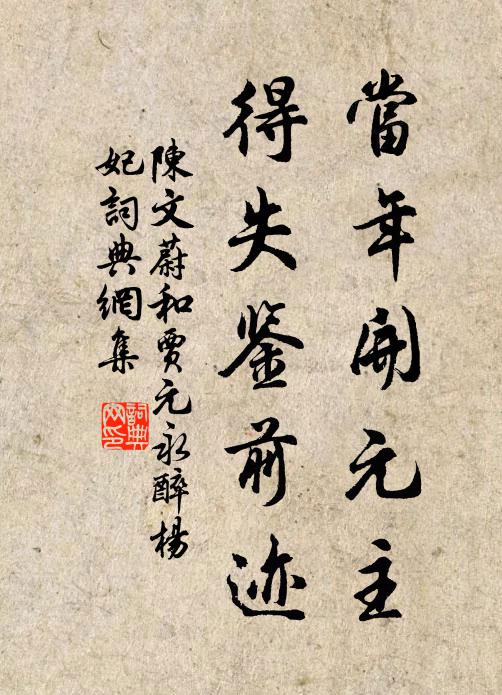 當年開元主
得失鉴前迹
陳文蔚和賈元永醉楊
妃詞典網集
詞典网印